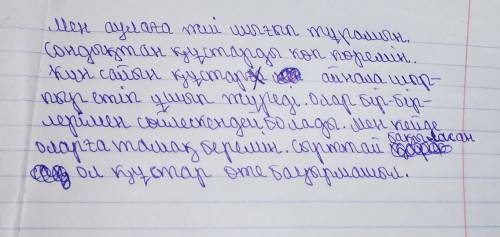 Мен аулаға жиі шығып тұрамын.
Сондықтан құстарды көп көремін.
Күн сайын құстар айнала шыр-
пыр етіп ұшып жүреді. Олар бір-бір-
лерімен сөйлескендей болады. Мен кейде
оларға тамақ беремін. Сырттай бақыласан
ол құстар өте бауырмашыл.